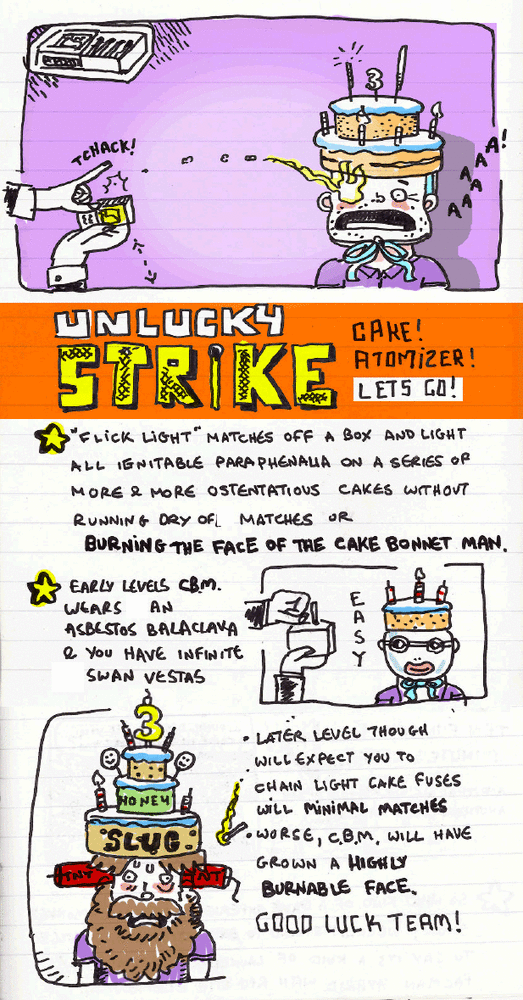 TCHACK!
3
AAAAA!
UNLUCKY
STRIKE
CAKE!
ATOMIZER!
LETS GO!
"FLICK LIGHT" MATCHES OFF A BOX AND LIGHT
ALL IGNITABLE PARAPHENALIA ON A SERIES OF
MORE & MORE OSTENTATIOUS CAKES WITHOUT
RUNNING DRY OF MATCHES OR
BURNING THE FACE OF THE CAKE BONNET MAN.
EARLY LEVELS C.B.M.
WEARS AN
ASBESTOS BALACLAVA
& YOU HAVE INFINITE
SWAN VESTAS
EASY
3
HONEY
SLUG
TNT
TNT
• LATER LEVEL THOUGH
WILL EXPECT YOU TO
CHAIN LIGHT CAKE FUSES
WILL MINIMAL MATCHES
• WORSE, C.B.M. WILL HAVE
GROWN A HIGHLY
BURNABLE FACE.
GOOD LUCK TEAM!